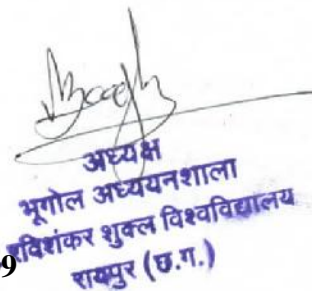 अध्यक्ष
भूगोल अध्ययनशाला
रविशंकर शुक्ल विश्वविद्यालय
9 रायपुर (छ.ग.)